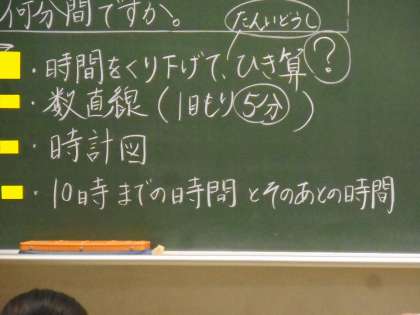 何分間ですか。
たんいどうし
・時間をくり下げて、ひき算?
・数直線(1目もり5分)
・時計図
・10時までの時間とそのあとの時間